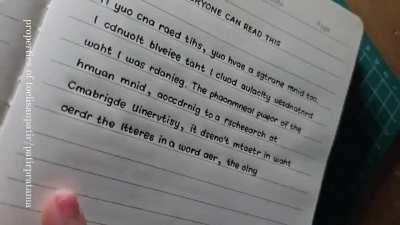 ERYONE CAN READ THIS
If yuo cna raed tihs, yuo hvae a sgtrane mnid too.
I cdnuolt blveiee taht I cluod aulaclty uesdnatnrd
waht I was rdanieg. The phaonmneal pweor of the
hmuan mnid, aoccdrnig to a rscheearch at
Cmabrigde Uinervtisy, it dseno't mtaetr in waht
oerdr the ltteres in a word aer, the olny